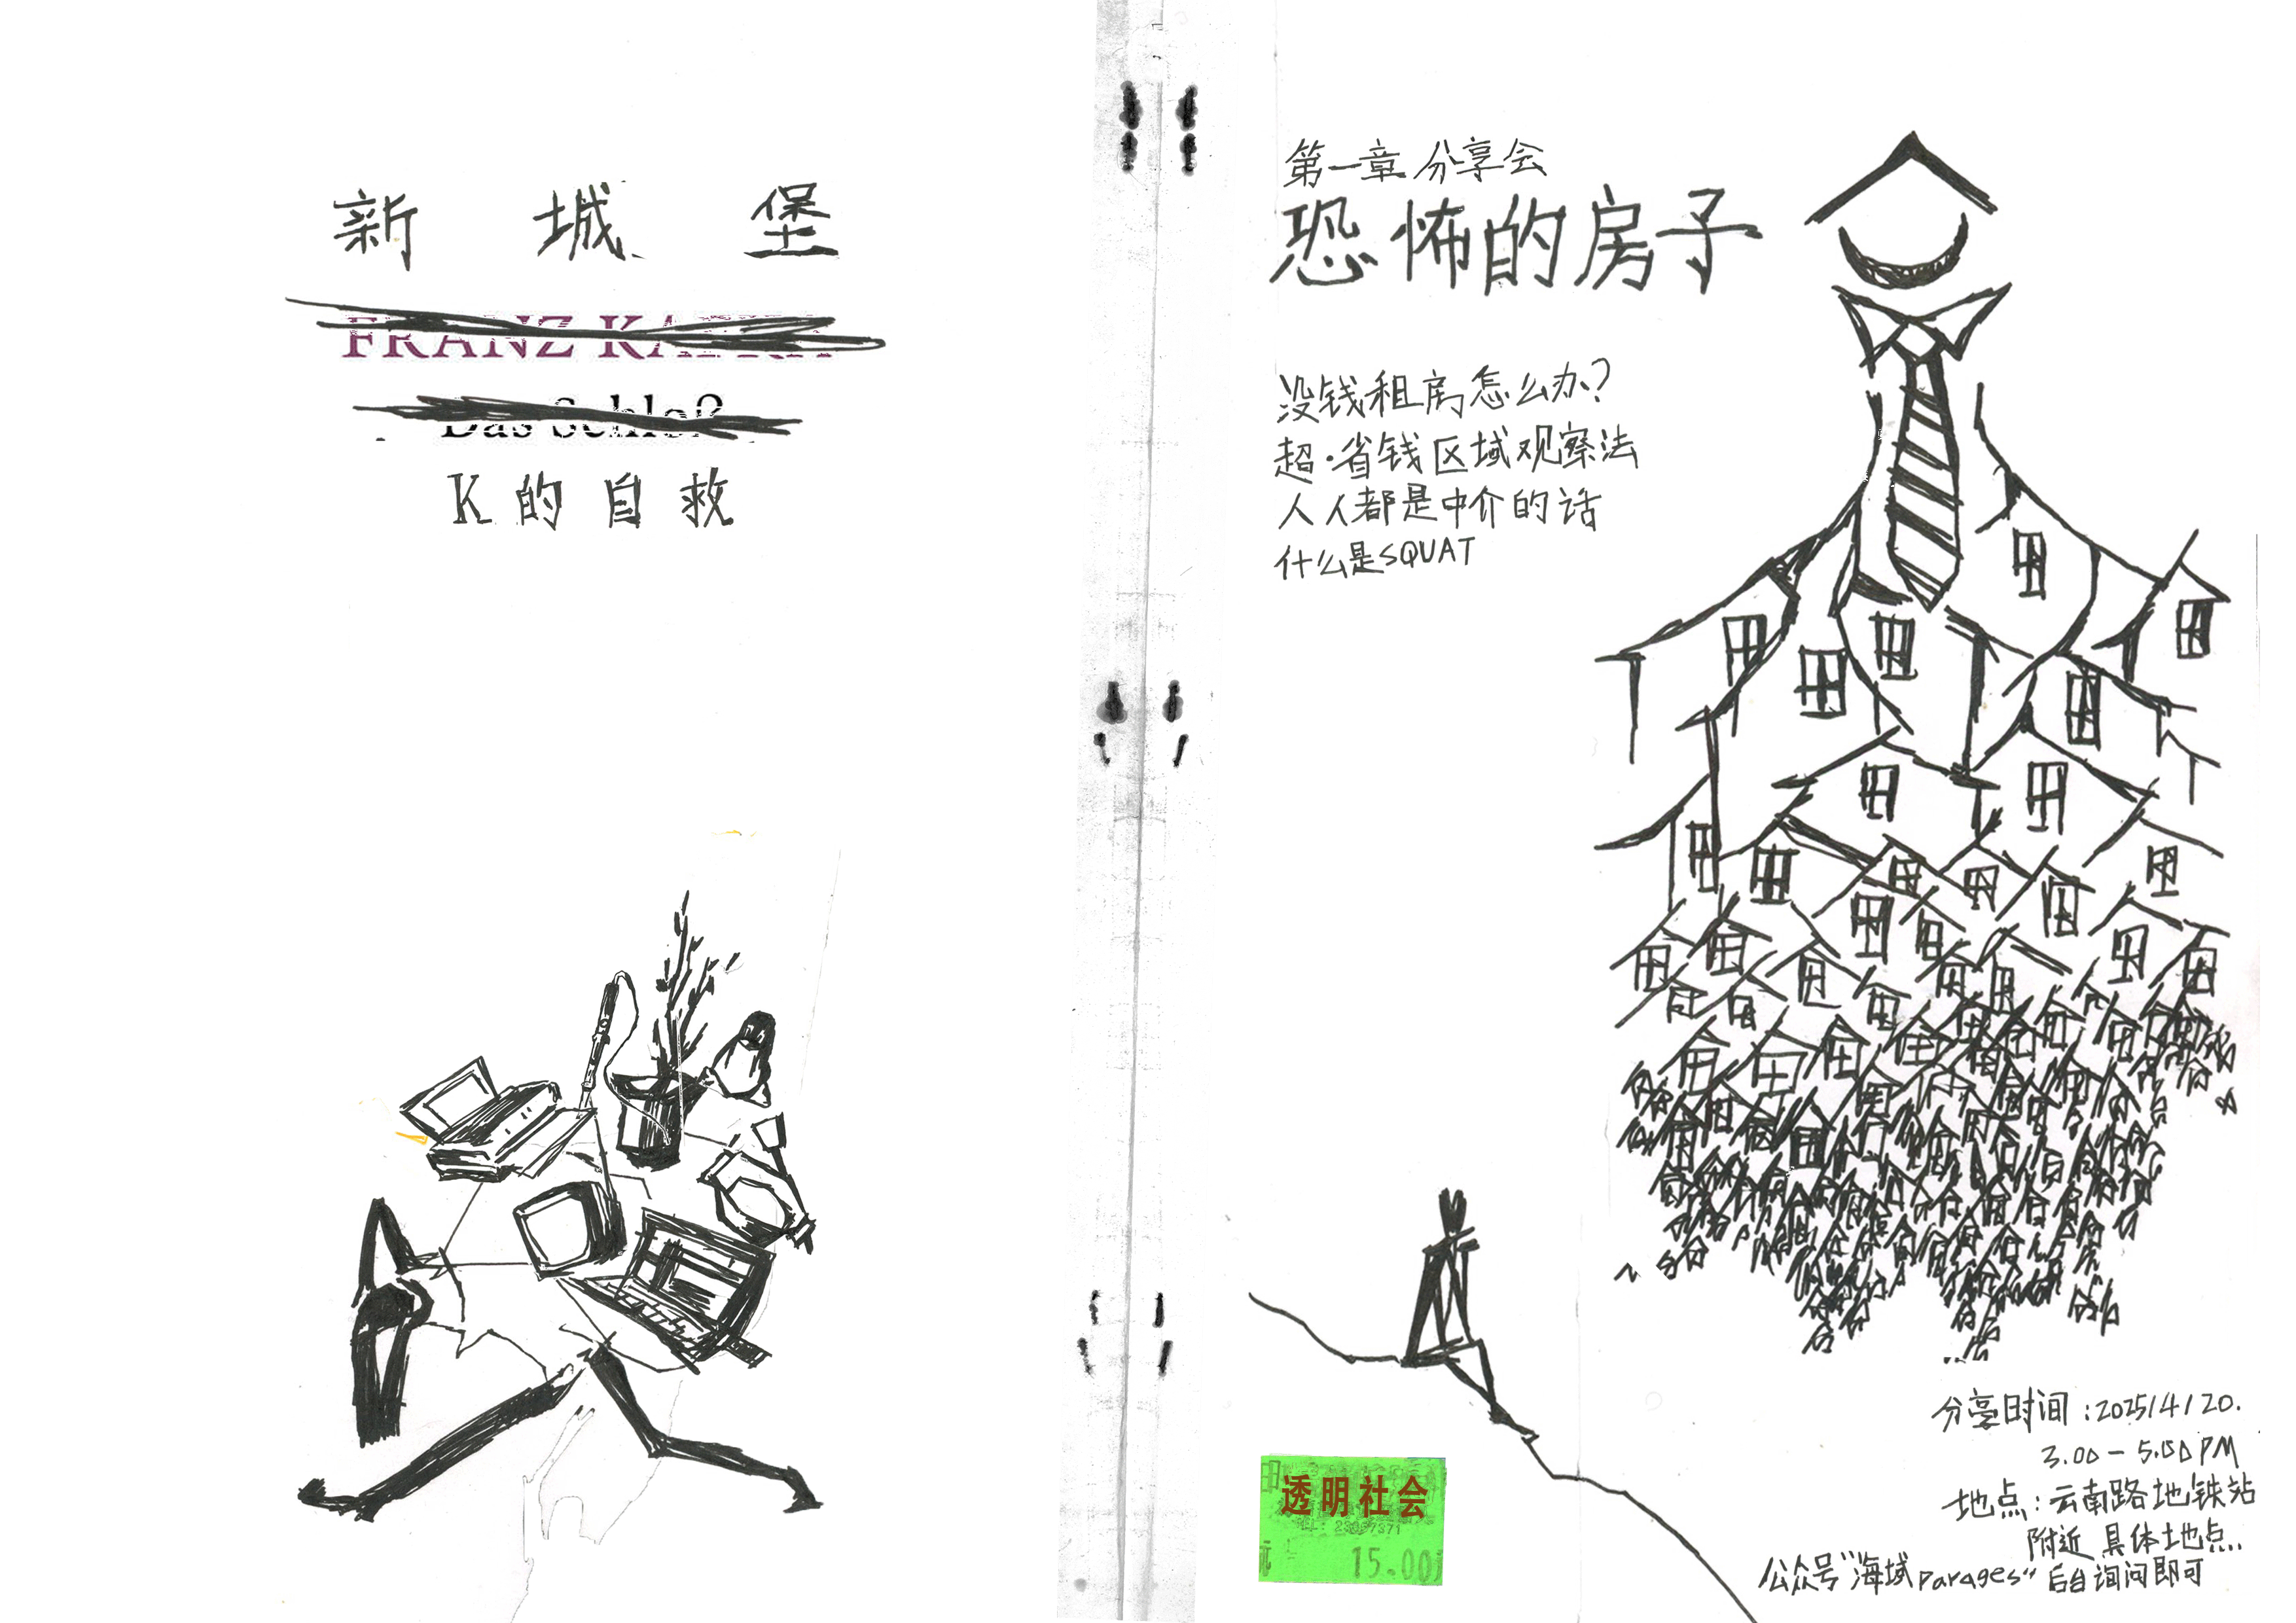 新城堡
FRANZ KAFKA
Das Schloß
K的自救
第一章 分享会
恐怖的房子
没钱租房怎么办?
超·省钱区域观察法
人人都是中介的话
什么是SQUAT
透明社会
15.00
分享时间:2025/4/20.
3.00-5.00PM
地点:云南路地铁站
附近 具体地点..
公众号"海域parages"后台询问即可